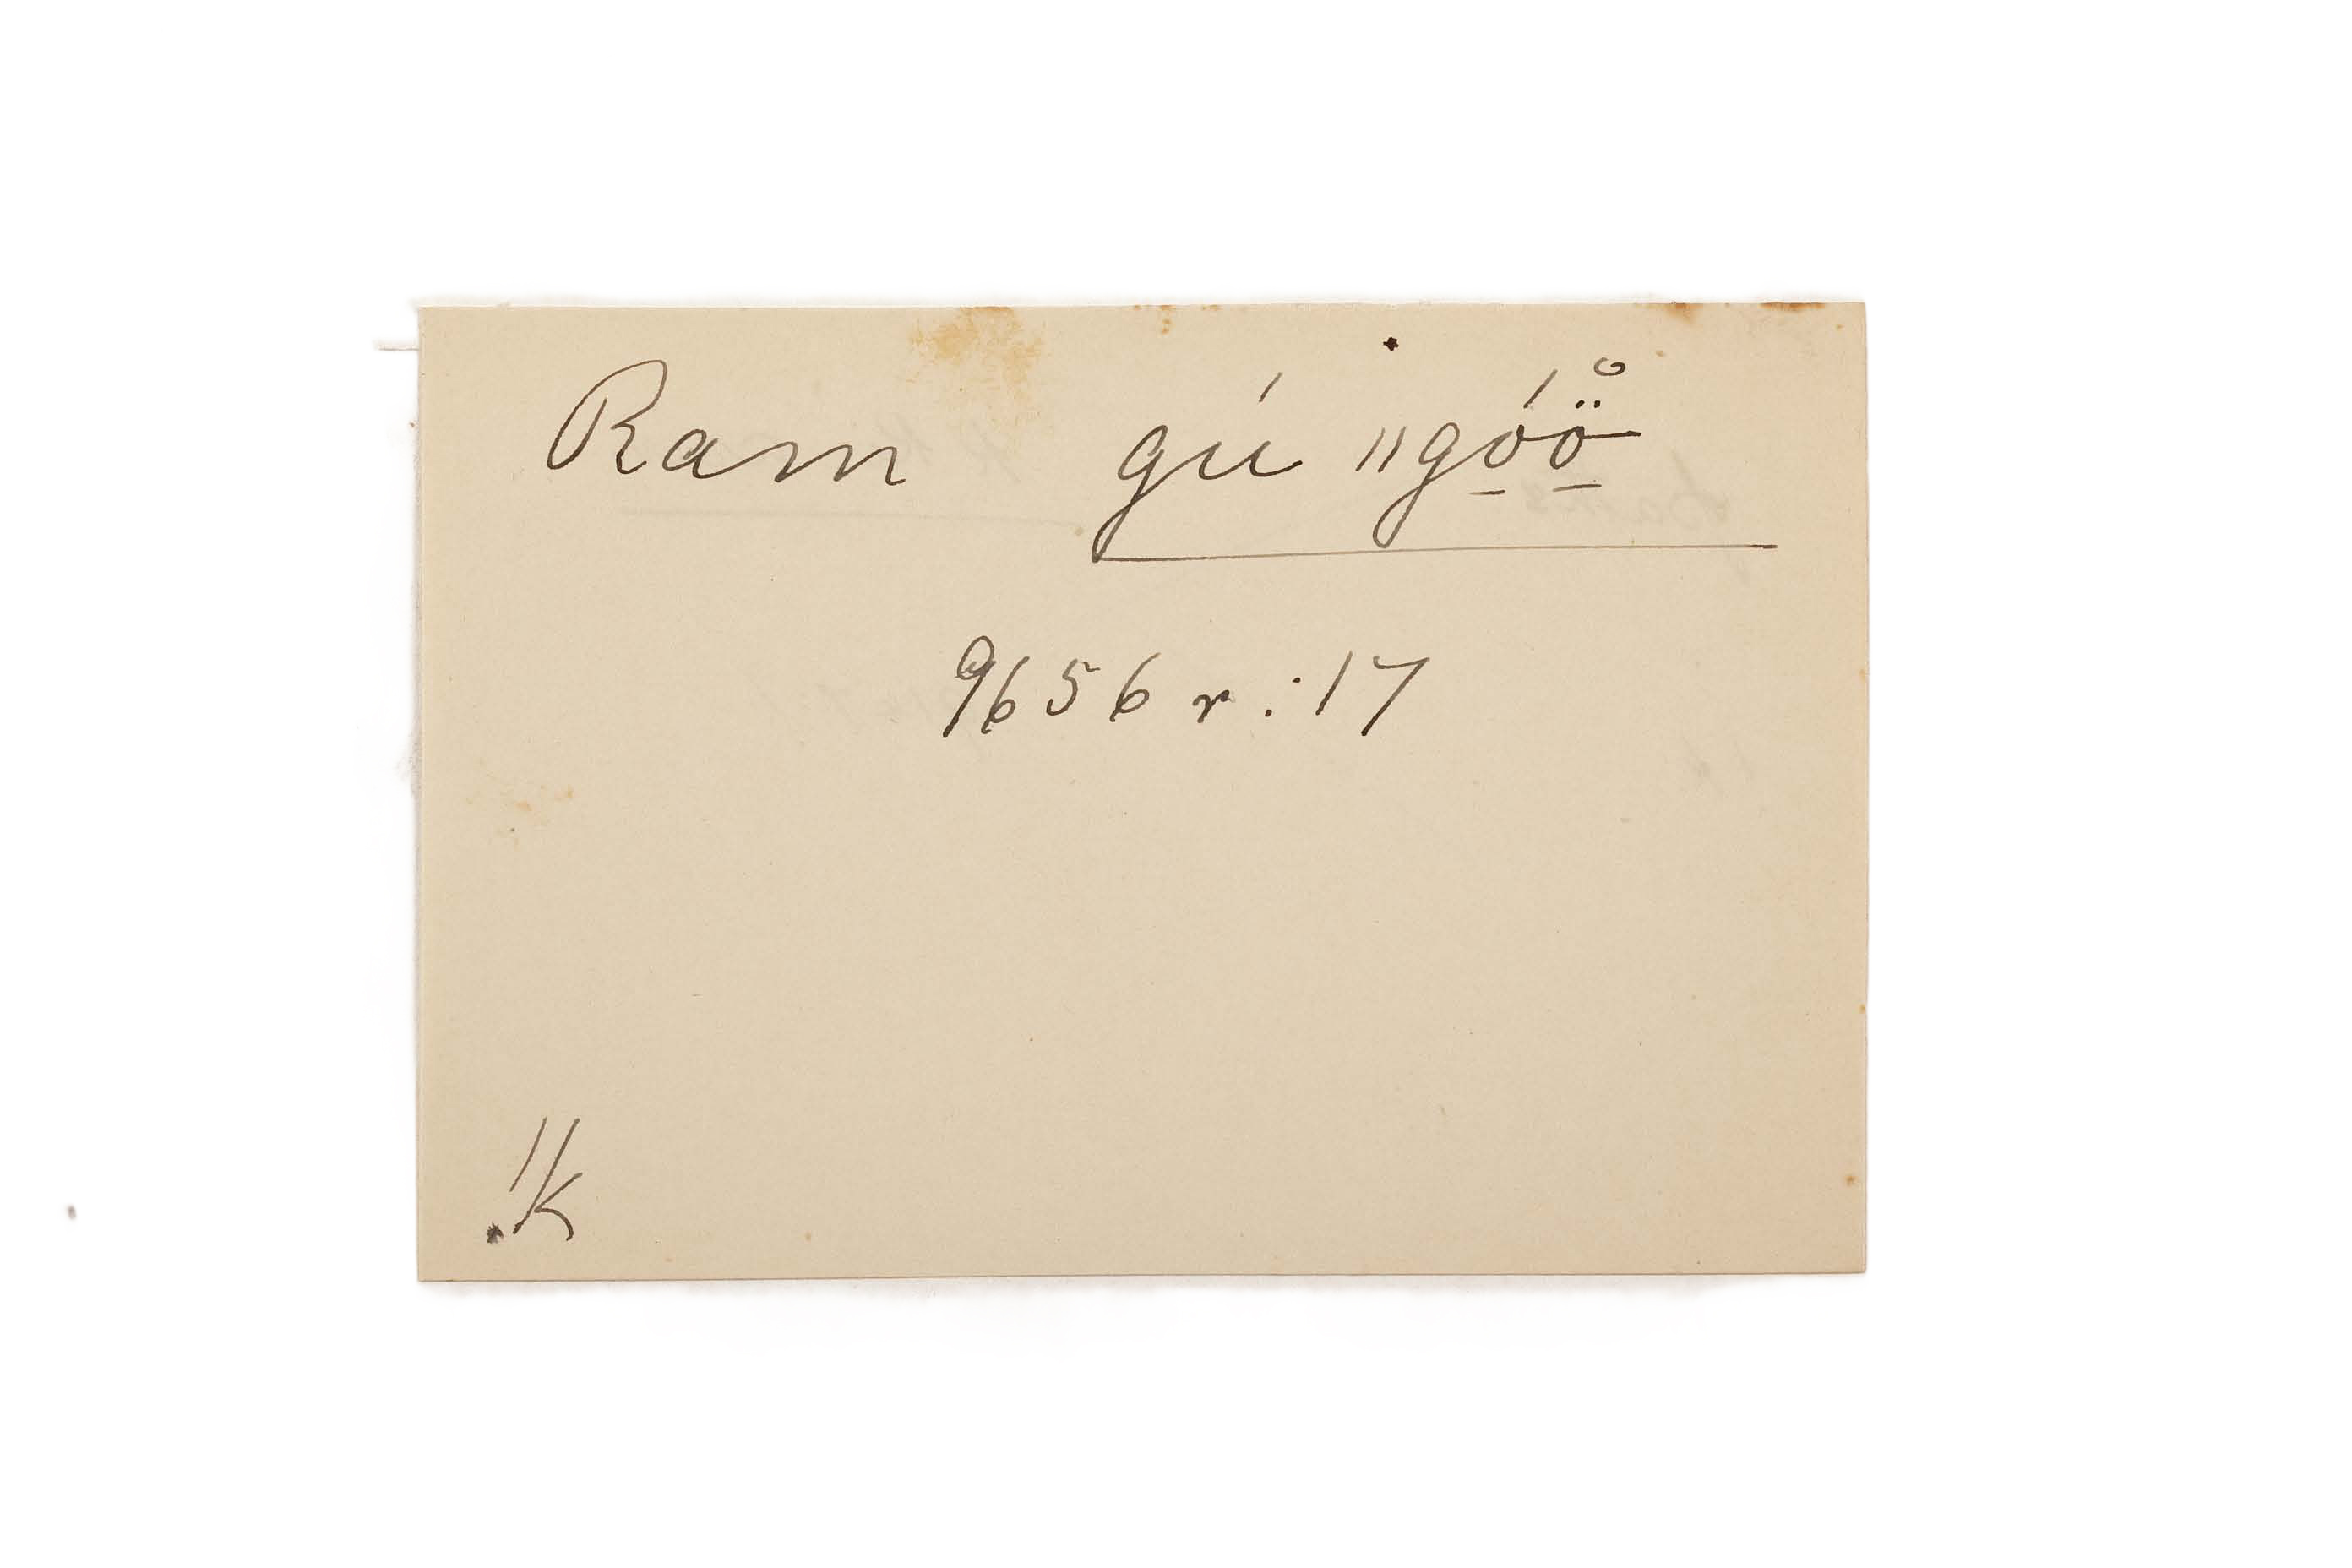 Ram gú ǁgó̱ö̱
9656 r.:17
!k